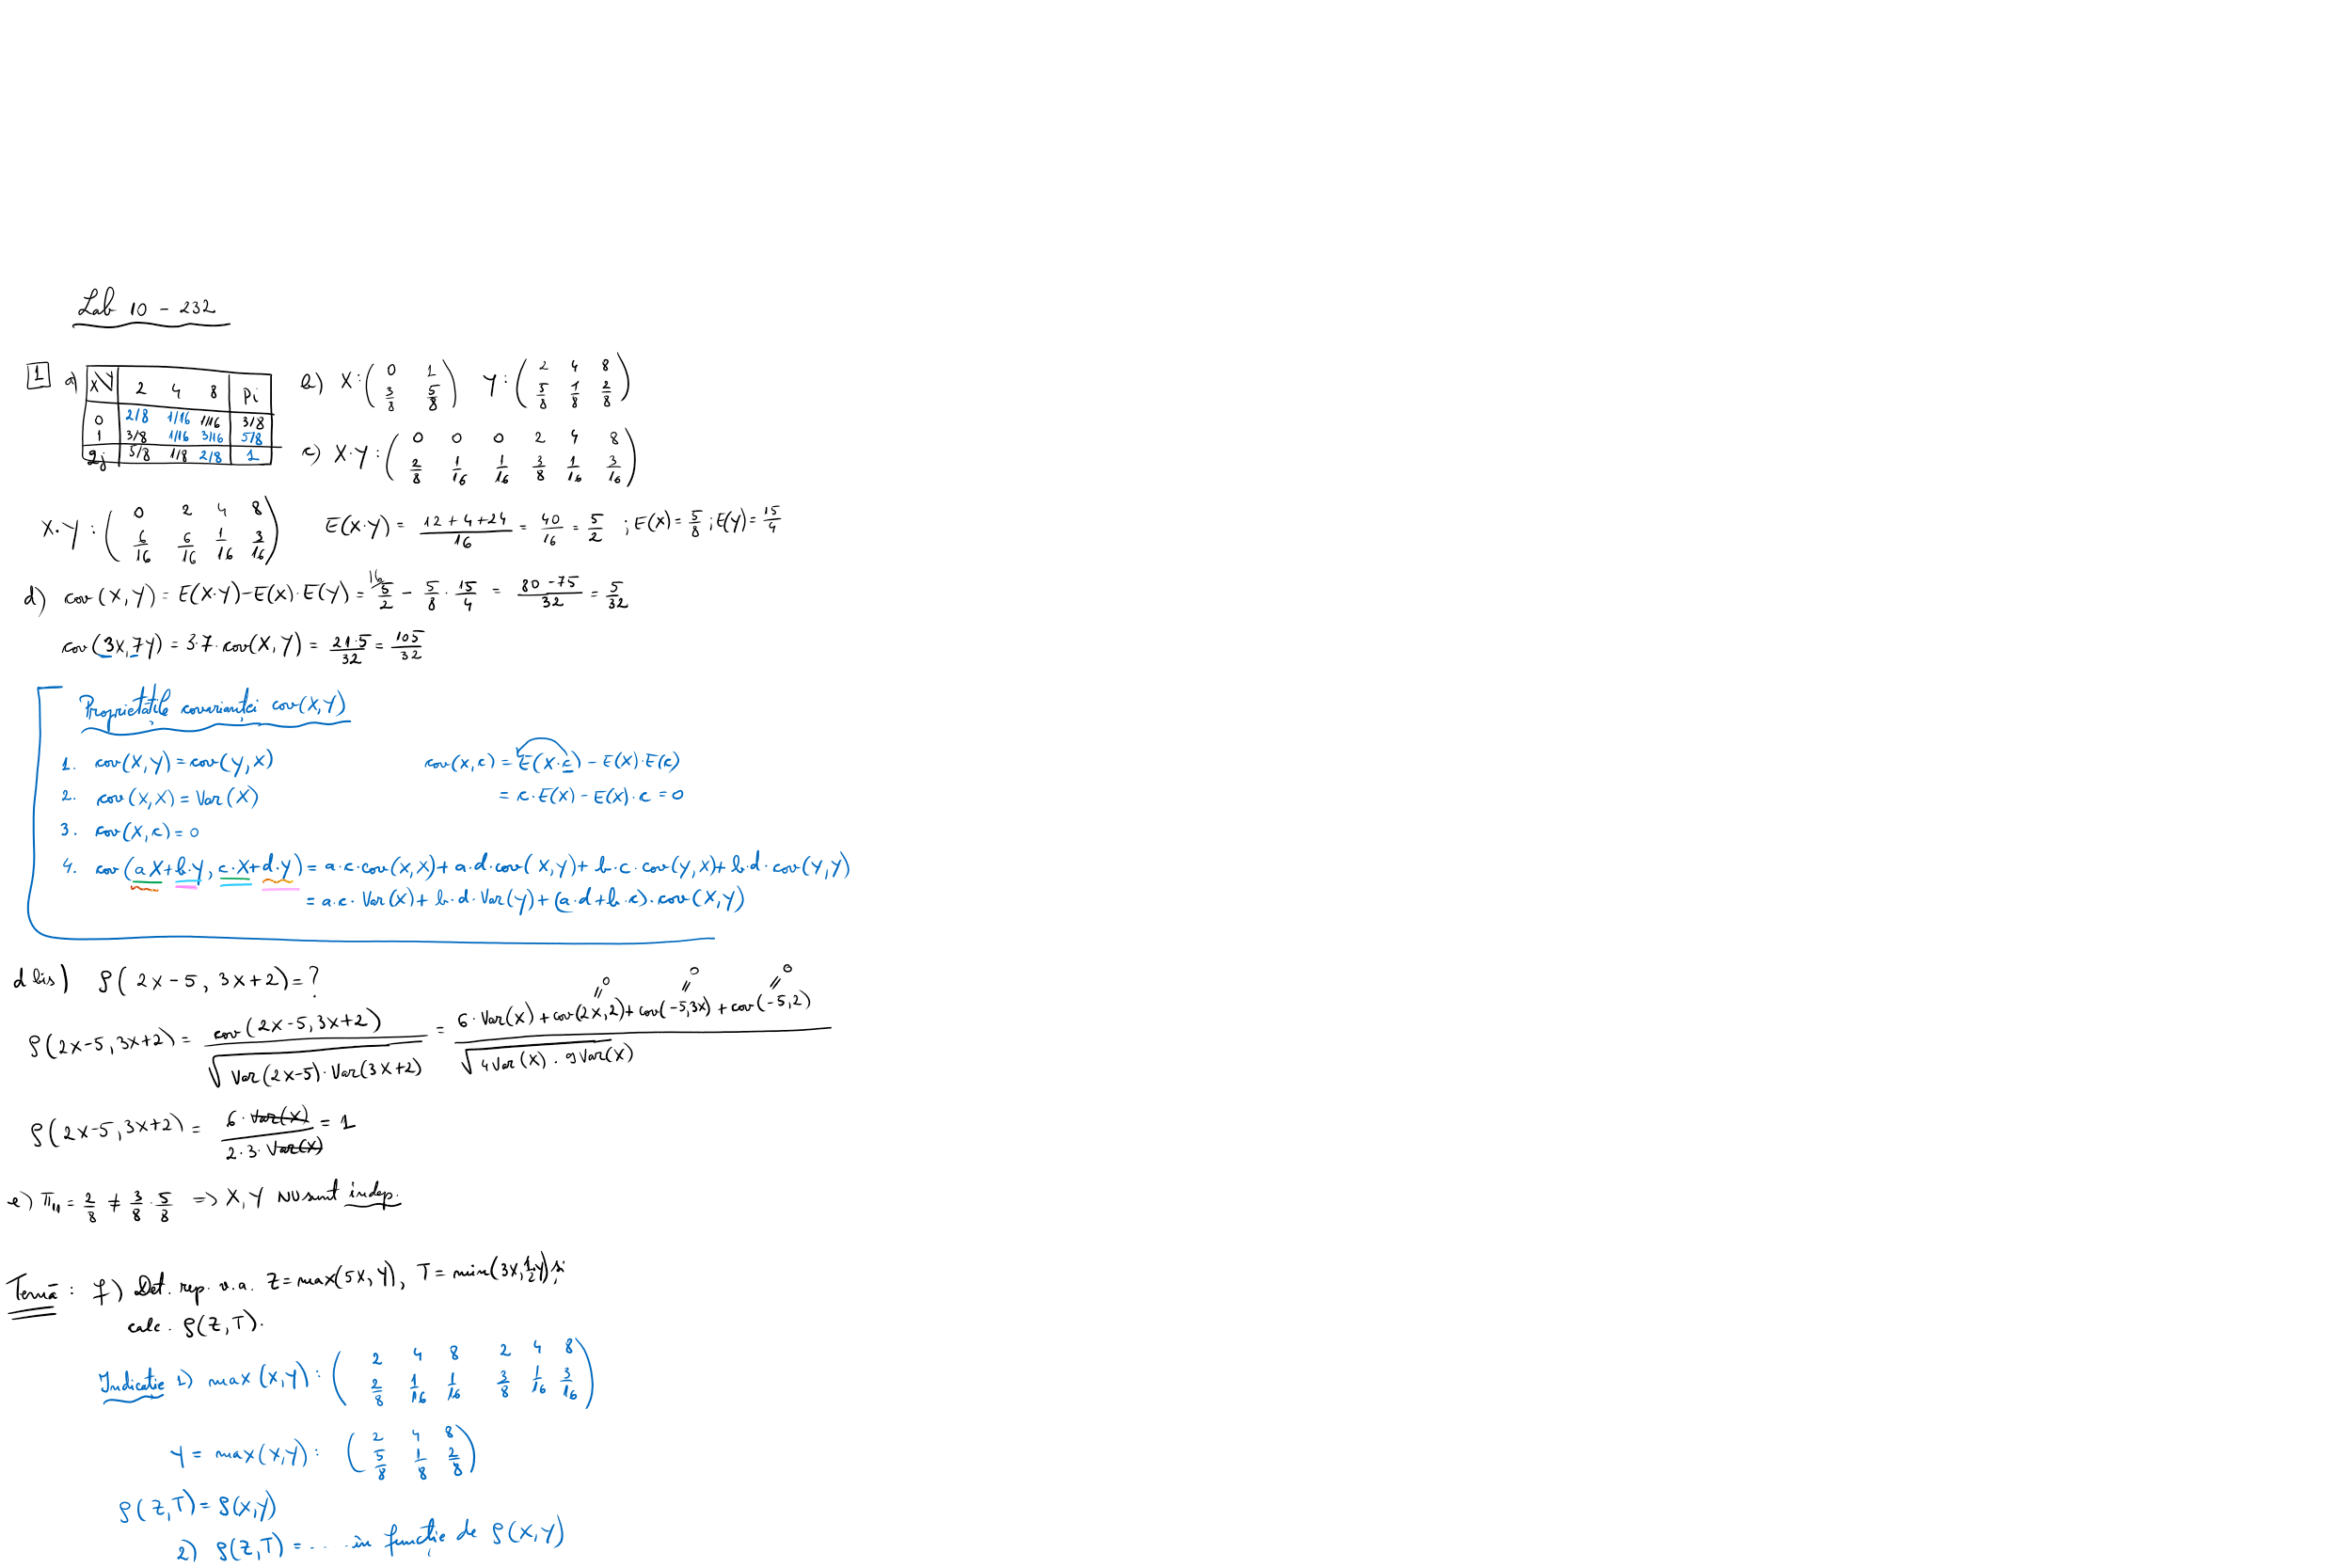 Lab 10 - 232
1 a) X\Y 2 4 8 pi
0 2/8 1/16 1/16 3/8
1 3/8 1/16 3/16 5/8
qj 5/8 1/8 2/8 1
b) X : (0 1 ; 3/8 5/8) Y : (2 4 8 ; 5/8 1/8 2/8)
c) X·Y : (0 0 0 2 4 8 ; 2/8 1/16 1/16 3/8 1/16 3/16)
X·Y : (0 2 4 8 ; 6/16 6/16 1/16 3/16) E(X·Y) = (12+4+24)/16 = 40/16 = 5/2 ; E(X) = 5/8 ; E(Y) = 15/4
d) cov(X,Y) = E(X·Y) - E(X)·E(Y) = 16/ 5/2 - 5/8 · 15/4 = (80-75)/32 = 5/32
cov(3X,7Y) = 3·7·cov(X,Y) = 21·5/32 = 105/32
Proprietățile covarianței cov(X,Y)
1. cov(X,Y) = cov(Y,X) cov(X,c) = E(X·c) - E(X)·E(c)
2. cov(X,X) = Var(X) = c·E(X) - E(X)·c = 0
3. cov(X,c) = 0
4. cov(aX+b·Y, c·X+d·Y) = a·c·cov(X,X) + a·d·cov(X,Y) + b·c·cov(Y,X) + b·d·cov(Y,Y)
= a·c·Var(X) + b·d·Var(Y) + (a·d+b·c)·cov(X,Y)
d bis) ρ(2X-5, 3X+2) = ?
ρ(2X-5, 3X+2) = cov(2X-5, 3X+2) / √(Var(2X-5)·Var(3X+2)) = (6·Var(X) + cov(2X,2) + cov(-5,3X) + cov(-5,2)) / √(4Var(X)·9Var(X)) =0 =0 =0
ρ(2X-5, 3X+2) = 6·Var(X) / 2·3·Var(X) = 1
e) π11 = 2/8 ≠ 3/8 · 5/8 => X, Y NU sunt indep.
Temă : f) Det. rep. v.a. Z = max(5X, Y), T = min(3X, 1/2 Y) și
calc. ρ(Z,T).
Indicatie 1) max(X,Y) : (2 4 8 2 4 8 ; 2/8 1/16 1/16 3/8 1/16 3/16)
Y = max(X,Y) : (2 4 8 ; 5/8 1/8 2/8)
ρ(Z,T) = ρ(X,Y)
2) ρ(Z,T) = .... în funcție de ρ(X,Y)